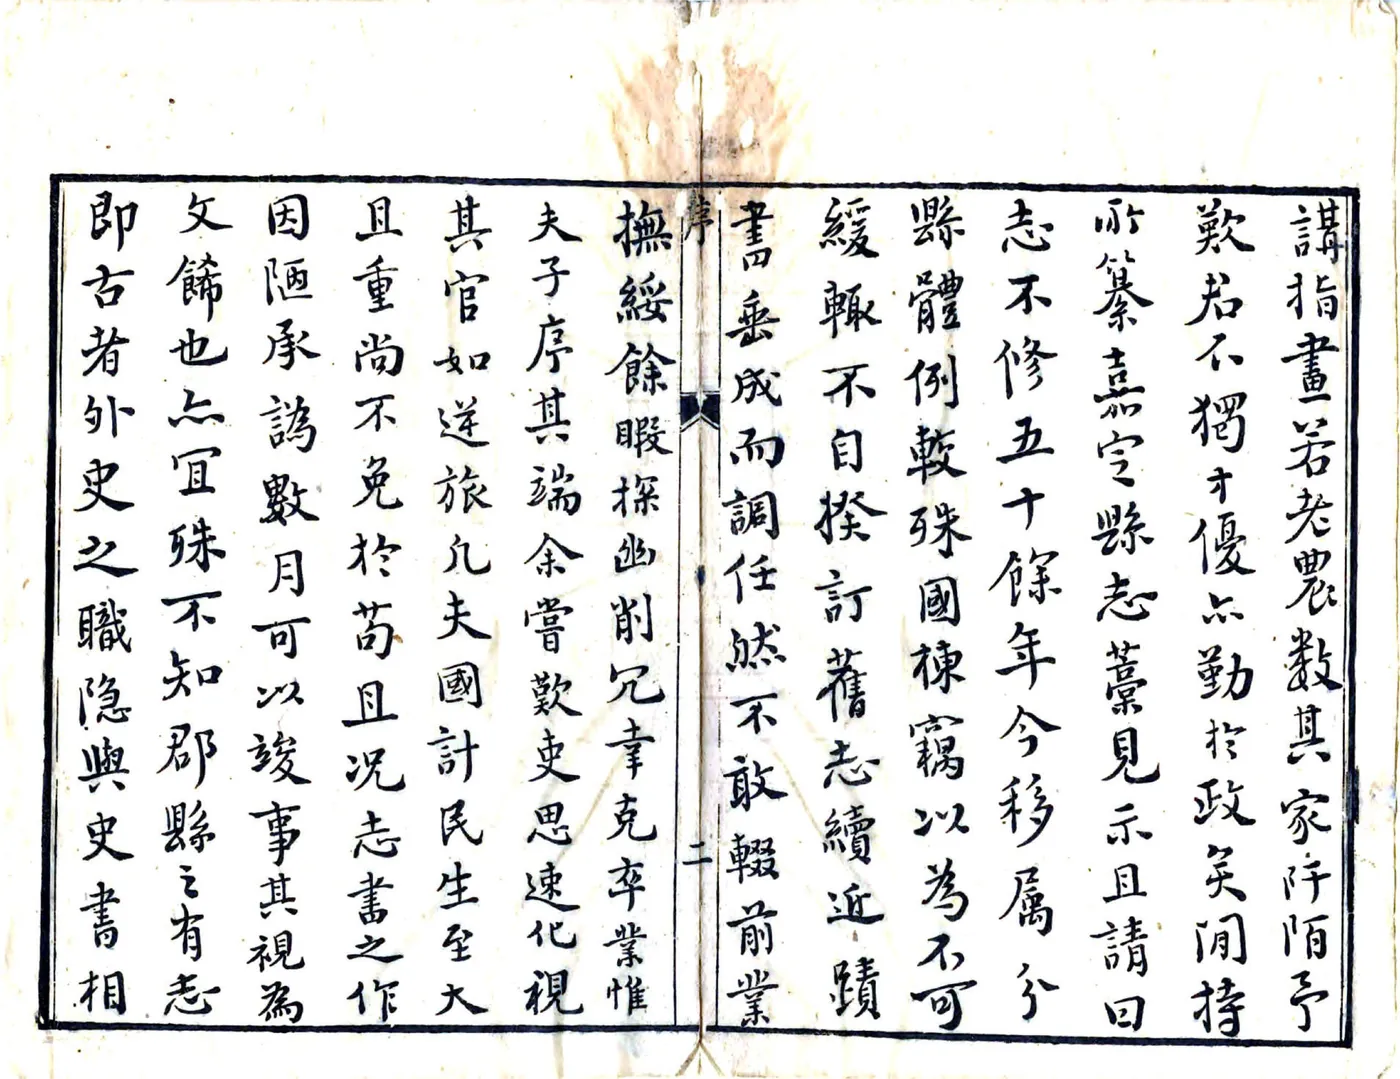 講指畫若老農数其家阡陌予
歎君不獨才優亦勤於政矣閒持
所纂嘉定縣志藁見示且請曰
志不修五十餘年今移属分
縣體例較殊國棟竊以為不可
緩輙不自揆訂舊志續近蹟
書垂成而調任然不敢輟前業
序
二
撫綏餘暇探幽削冗幸克卒業惟
夫子序其端余嘗歎吏思速化視
其官如逆旅凡夫國計民生至大
且重尚不免於苟且况志書之作
因陋承譌數月可以竣事其視為
文餙也亦宜殊不知郡縣之有志
即古者外史之職隐與史書相